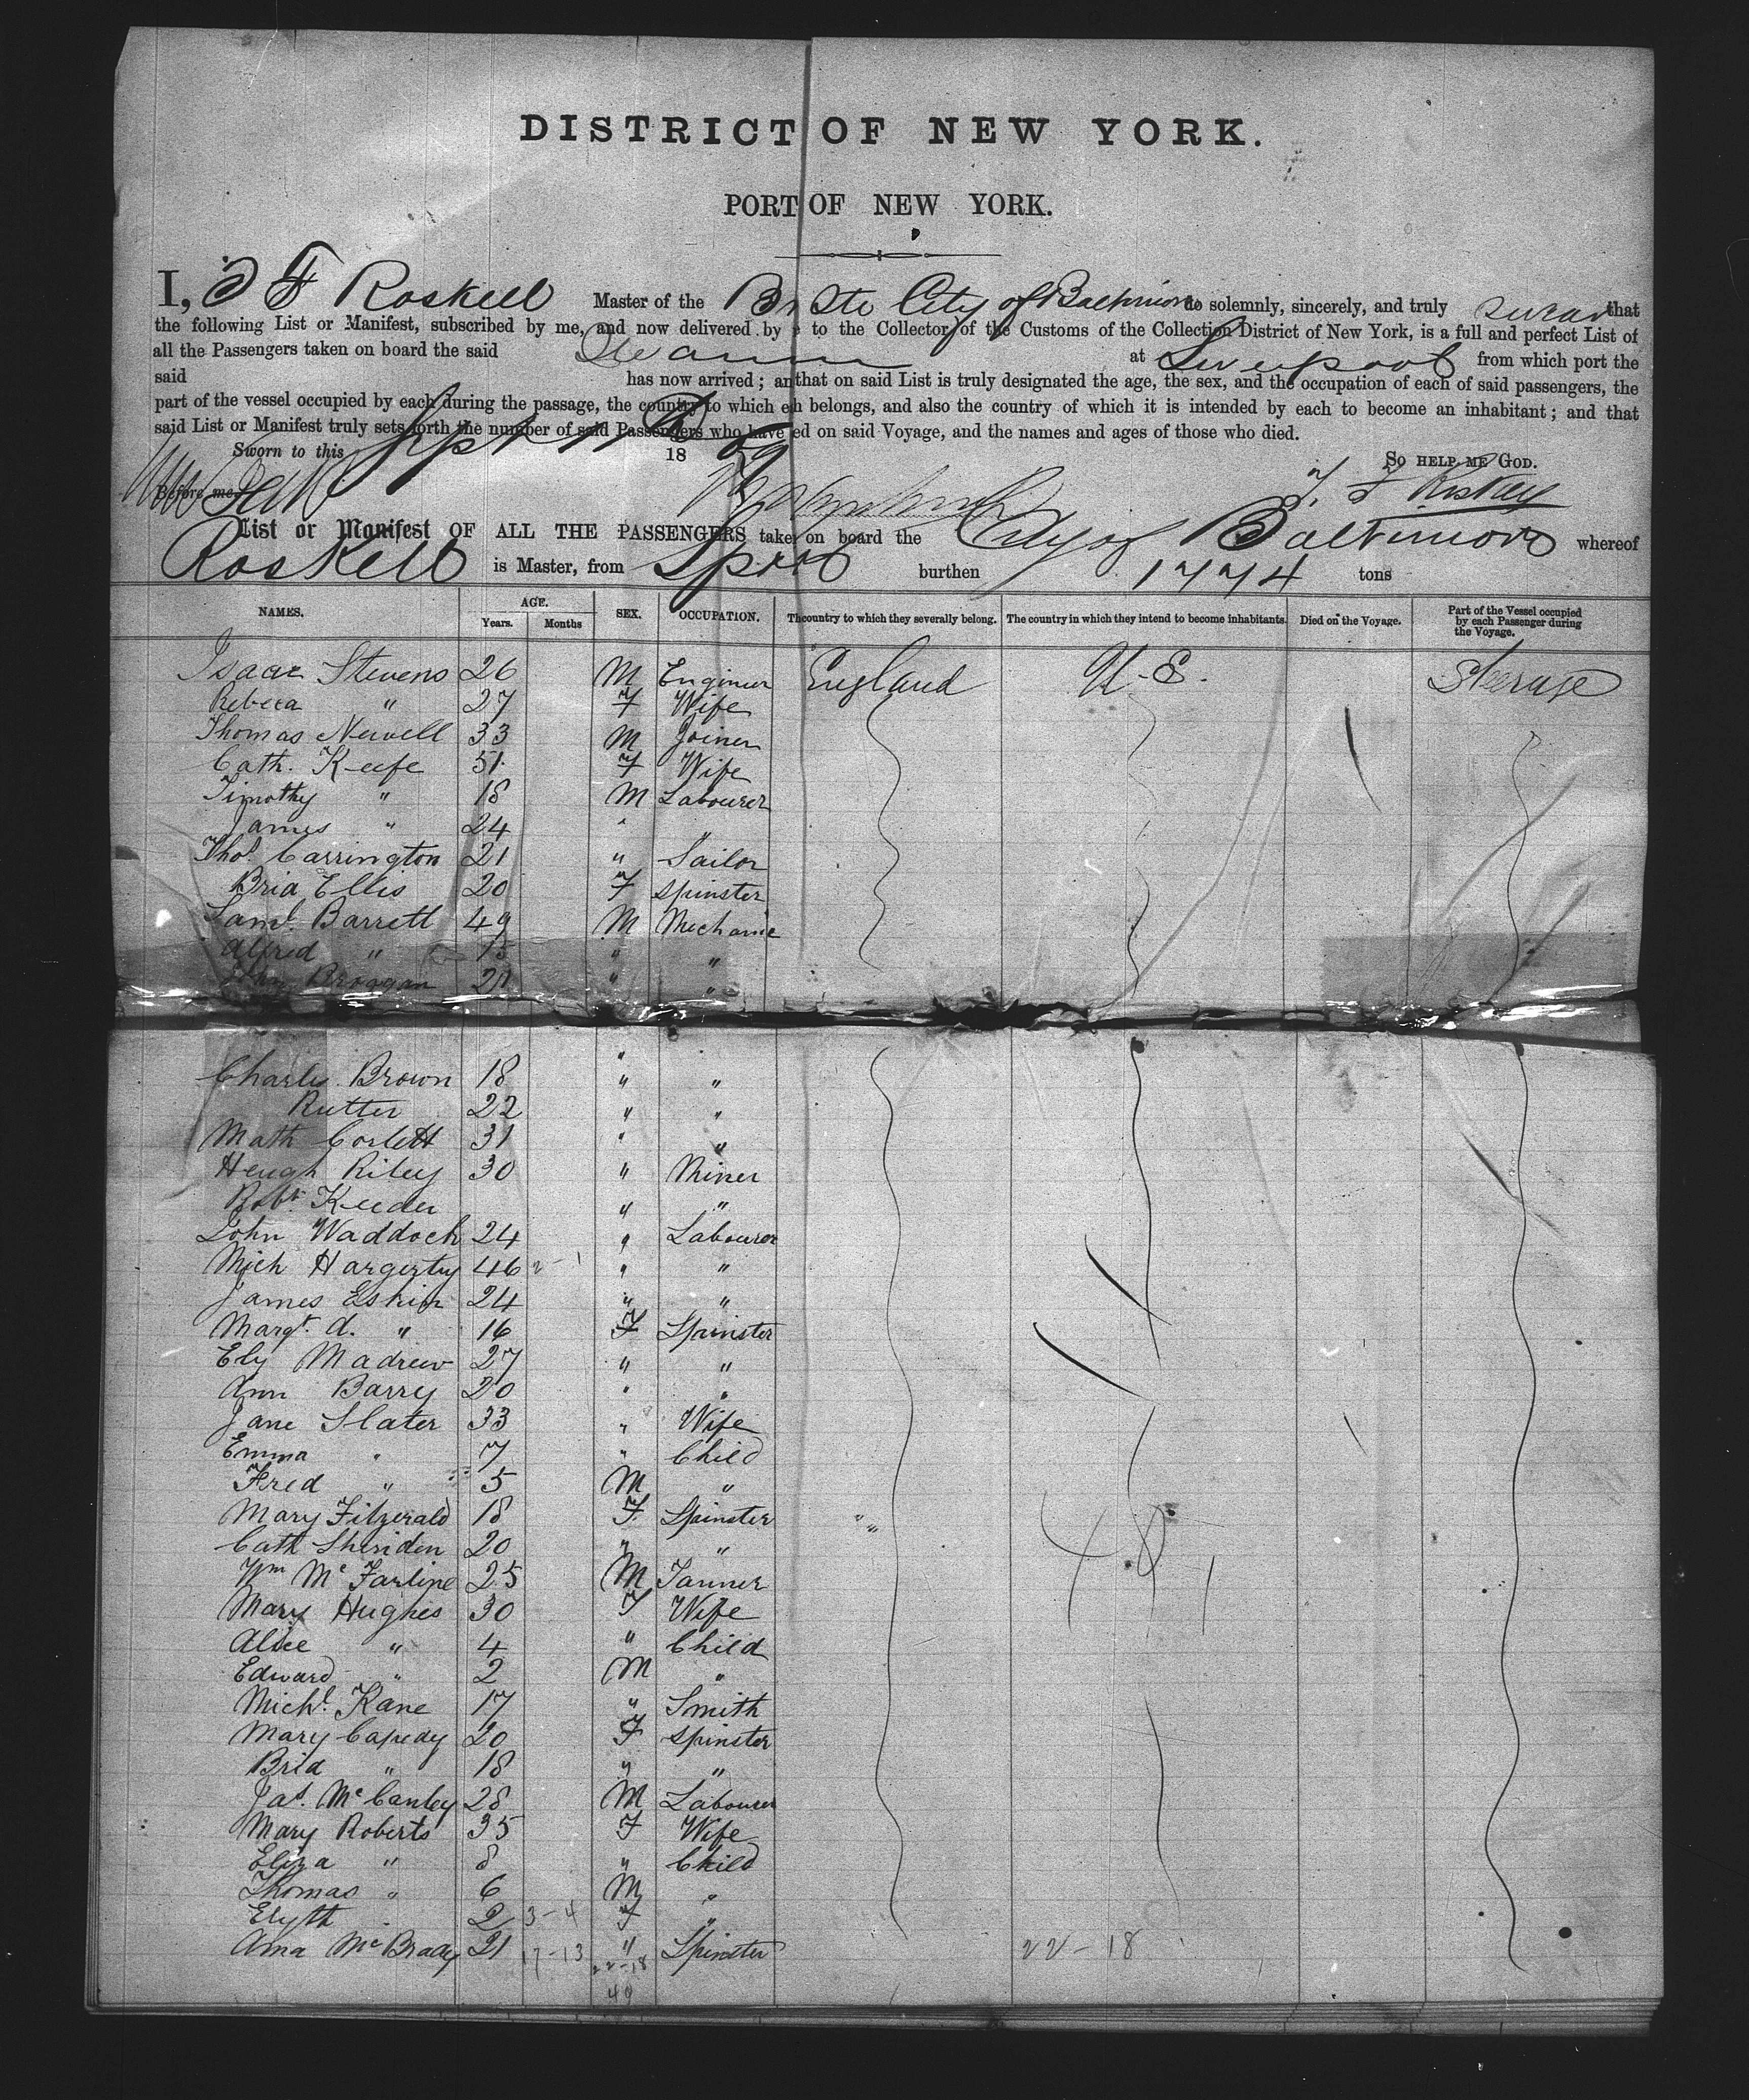 DISTRICT OF NEW YORK.
PORT OF NEW YORK.
I, F Roskell Master of the Br Ste City of Baltimore do solemnly, sincerely, and truly swear that
the following List or Manifest, subscribed by me, and now delivered by to the Collector of the Customs of the Collection District of New York, is a full and perfect List of
all the Passengers taken on board the said Steamer at Liverpool from which port the
said has now arrived; an that on said List is truly designated the age, the sex, and the occupation of each of said passengers, the
part of the vessel occupied by each during the passage, the country to which e h belongs, and also the country of which it is intended by each to become an inhabitant; and that
said List or Manifest truly sets forth the number of said Passengers who have ed on said Voyage, and the names and ages of those who died.
Sworn to this Sept 18 59 SO HELP ME GOD.
Before me
List or Manifest OF ALL THE PASSENGERS taken on board the City of Baltimore whereof
Roskell is Master, from Lpool burthen 1774 tons
NAMES. AGE. Years. Months SEX. OCCUPATION. The country to which they severally belong. The country in which they intend to become inhabitants. Died on the Voyage. Part of the Vessel occupied by each Passenger during the Voyage.
Isaac Stevens 26 M Engineer England U.S. Steerage
Rebeca " 27 F Wife
Thomas Newell 33 M Joiner
Cath. Keefe 51 F Wife
Timothy " 18 M Labourer
James " 24 "
Thos. Carrington 21 " Sailor
Brid Ellis 20 F Spinster
Saml. Barrett 49 M Mechanic
Alfred " 15 " "
Brougan " "
" "
Charles Brown 18 " "
Rutter 22 " "
Math Corlett 31 " "
Heugh Riley 30 " Miner
Robt. Keeder " "
John Waddock 24 " Labourer
Mich Hargerty 46 2 - 1 " "
James Eskin 24 " "
Margt. A. " 16 F Spinster
Ely Madrew 27 " "
Ann Barry 20 " "
Jane Slater 33 " Wife
Emma " 7 " Child
Fred " 5 M "
Mary Fitzgerald 18 F Spinster
Cath Sheriden 20 " "
Wm McFarline 25 M Tanner
Mary Hughes 30 F Wife
Alice " 4 " Child
Edward " 2 M "
Michl. Kane 17 " Smith
Mary Capedy 20 F Spinster
Brid " 18 " "
Jas. McCanley 28 M Labourer
Mary Roberts 35 F Wife
Eliza " 8 " Child
Thomas " 6 M "
Elyth 2 3-4 F "
Ama McBrady 21 17-13 " Spinster 22-18
22-18
40